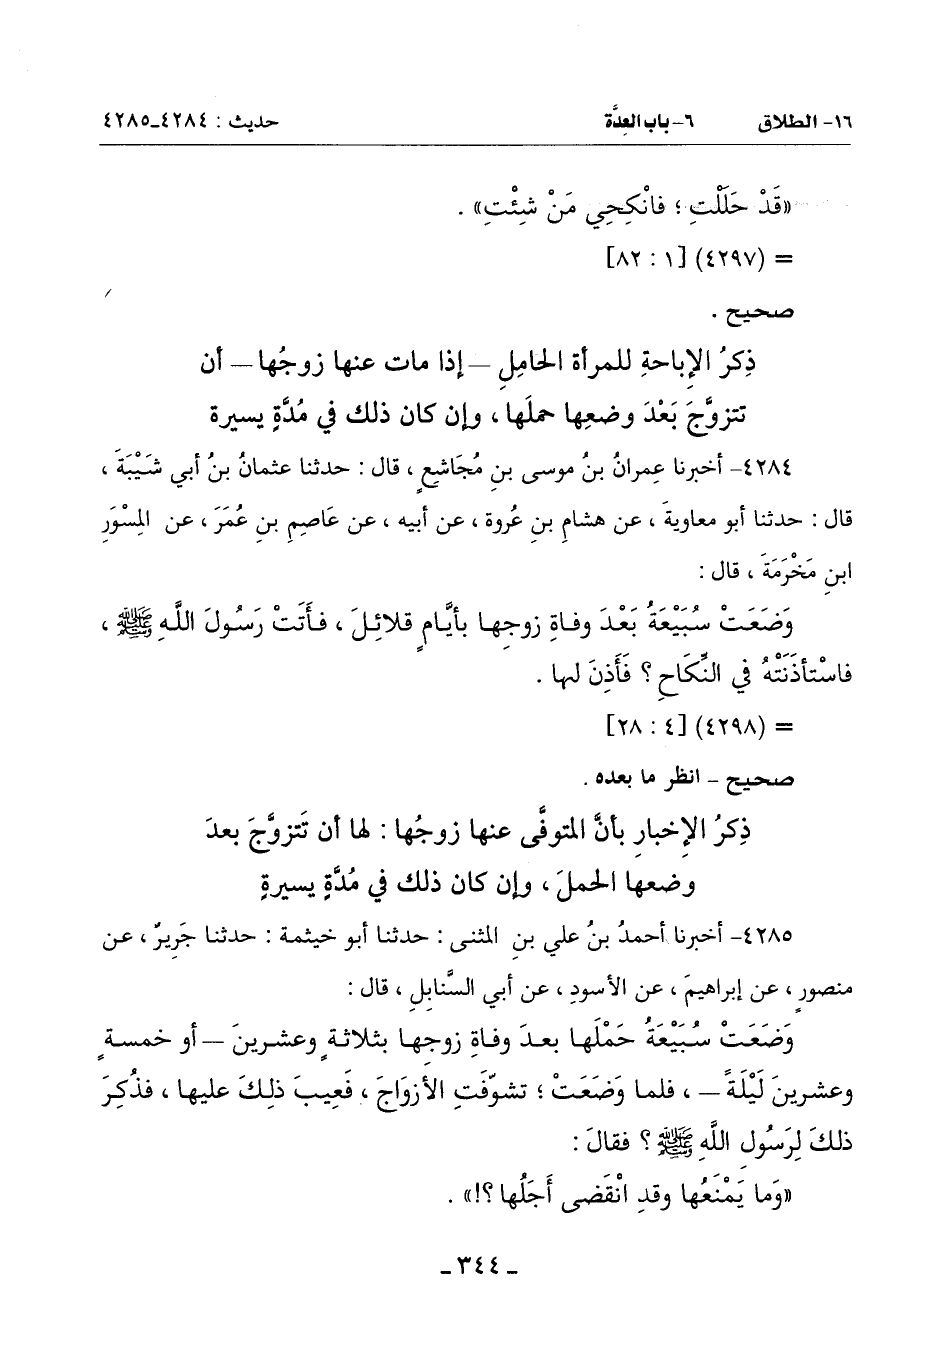 ١٦- الطلاق ٦- باب العِدَّة حديث : ٤٢٨٤-٤٢٨٥
«قَدْ حَلَلْتِ ؛ فانْكِحِي مَنْ شِئْتِ» .
= (٤٢٩٧) [١ : ٨٢]
صحيح .
ذِكرُ الإباحةِ للمرأة الحامِلِ – إذا مات عنها زوجُها – أن
تتزوَّجَ بَعْدَ وضعِها حملَها ، وإن كان ذلك في مُدَّةٍ يسيرة
٤٢٨٤- أخبرنا عمرانُ بنُ موسى بنِ مُجَاشعٍ ، قال : حدثنا عثمانُ بنُ أبي شَيْبَةَ ،
قال : حدثنا أبو معاويةَ ، عن هشامِ بنِ عُروة ، عن أبيه ، عن عَاصِمِ بنِ عُمَرَ ، عن المِسْوَرِ
ابنِ مَخْرَمَةَ ، قال :
وَضَعَتْ سُبَيْعَةُ بَعْدَ وفاةِ زوجِها بأيَّامٍ قلائِلَ ، فأَتَتْ رَسُولَ اللَّهِ ﷺ ،
فاسْتأذَنَتْهُ في النِّكَاحِ ؟ فَأَذِنَ لها .
= (٤٢٩٨) [٤ : ٢٨]
صحيح – انظر ما بعده .
ذِكرُ الإخبارِ بأنَّ المتوفَّى عنها زوجُها : لها أن تَتزوَّجَ بعدَ
وضعِها الحملَ ، وإن كان ذلك في مُدَّةٍ يسيرةٍ
٤٢٨٥- أخبرنا أحمدُ بنُ علي بنِ المثنى : حدثنا أبو خيثمة : حدثنا جَريرٌ ، عن
منصورٍ ، عن إبراهيمَ ، عن الأسودِ ، عن أبي السَّنابِلِ ، قال :
وَضَعَتْ سُبَيْعَةُ حَمْلَها بعدَ وفاةِ زوجِها بثلاثةٍ وعشرينَ – أو خمسةٍ
وعشرينَ لَيْلَةً – ، فلما وَضَعَتْ ؛ تشوّفَتِ الأزوَاجَ ، فَعِيبَ ذلِكَ عليها ، فذُكِرَ
ذلكَ لِرَسُولِ اللَّهِ ﷺ ؟ فقالَ :
«وَما يَمْنَعُها وقدِ انْقَضى أَجَلُها ؟!» .
– ٣٤٤ –